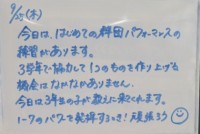 9/25(木)
今日は、はじめての群団パフォーマンスの
練習があります。
3学年で協力して1つのものを作り上げる
機会はなかなかありません。
今日は3年生の子が教えに来てくれます。
1-7のパワーを発揮するとき! 頑張ろう